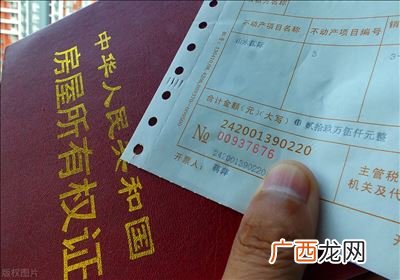 中华人民共和国
房屋所有权证
不动产项目名称
不动产项目编号
销
3
合计金额(元)(大写)
贰拾玖万伍仟元整
242001390220
No 00937676
242001390220
开票人:
主管税
机关及代
开
版权图片
广西龙网